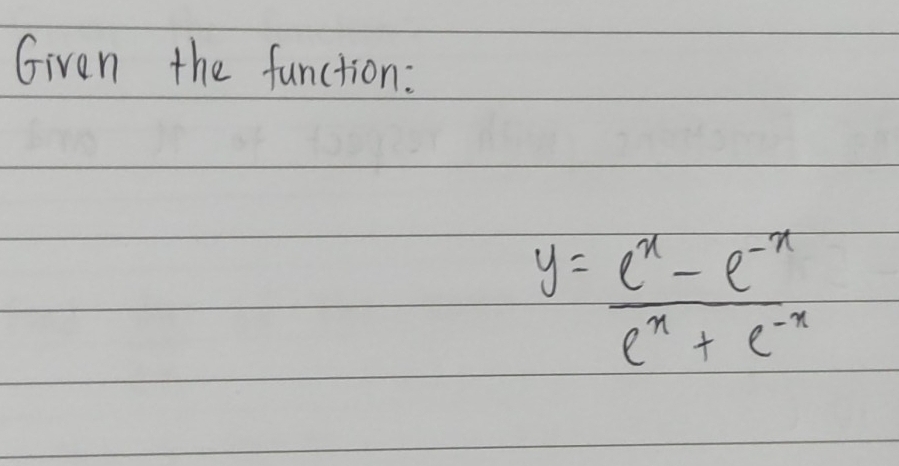 Given the function:
y = e^x - e^-x
e^x + e^-x